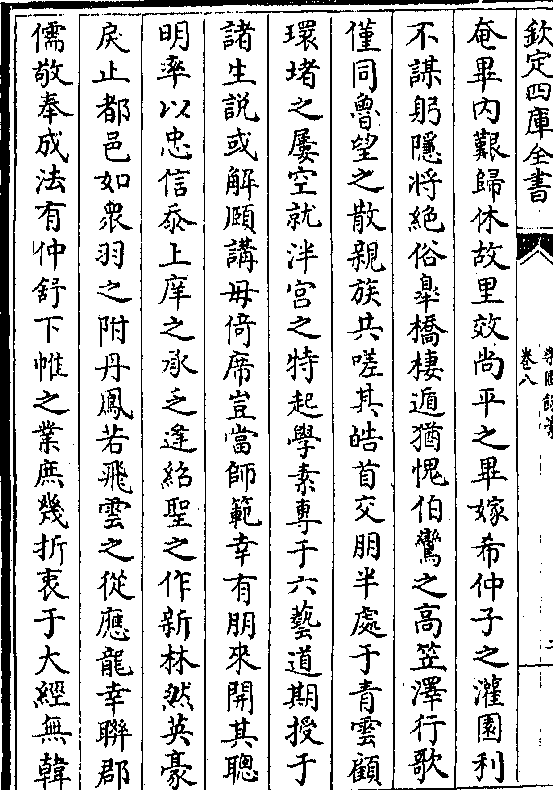 欽定四庫全書
卷八
奄畢内艱歸休故里效尚平之畢嫁希仲子之灌園利
不謀躬隱將絶俗臯橋棲遁猶愧伯鸞之高笠澤行歌
僅同魯望之散親族共嗟其皓首交朋半處于青雲顧
環堵之屢空就泮宫之特起學素専于六藝道期授于
諸生説或解頤講毋倚席豈當師範幸有朋來開其聰
明率以忠信忝上庠之承乏逢紹聖之作新林然英豪
戾止都邑如衆羽之附丹鳳若飛雲之從應龍幸聯郡
儒敬奉成法有仲舒下帷之業庶幾折衷于大經無韓